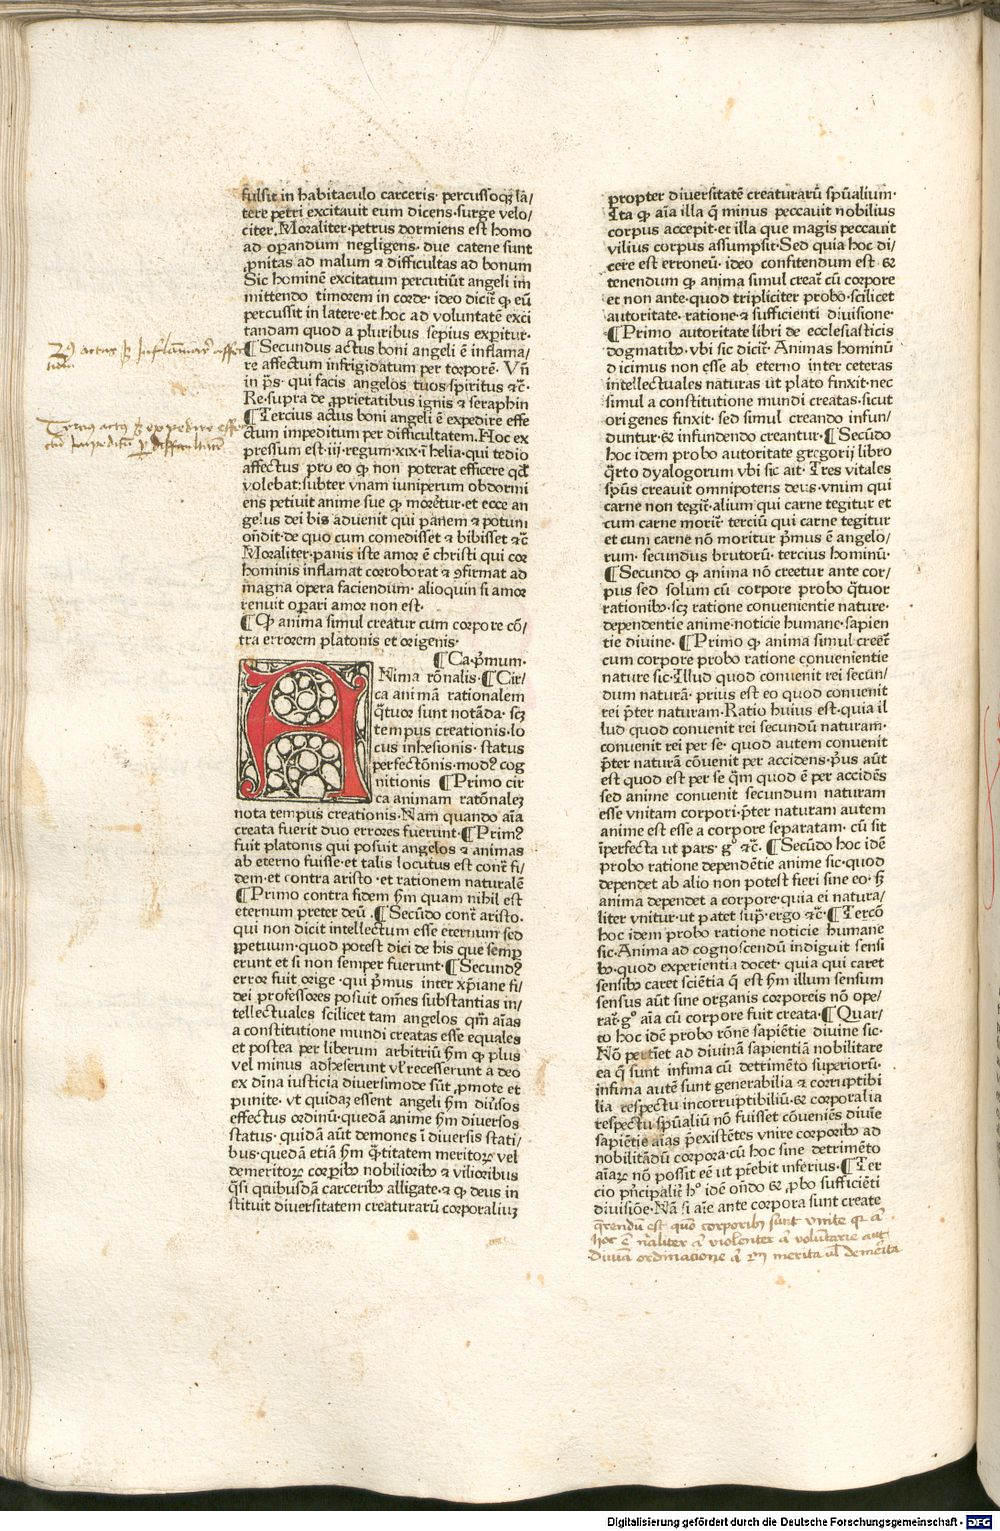 fulsit in habitaculo carceris· percussoqꝫ la/
tere petri excitauit eum dicens·surge velo/
citer. Moraliter·petrus dormiens est homo
ad oꝑandum negligens· due catene sunt
ꝓnitas ad malum ⁊ difficultas ad bonum
Sic hominē excitatum percutiūt angeli im
mittendo timorem in corde· ideo dicit̃ ꝙ eū
percussit in latere·et hoc ad voluntatē exci
tandam quod a pluribus sepius exꝑitur·
¶Secundus actus boni angeli ē inflama/
re affectum infrigidatum per torporē· Vñ
in p̃s· qui facis angelos tuos spiritus ⁊c̃·
Re·supra de ꝓprietatibus ignis ⁊ seraphin
¶Tercius actus boni angeli ē expedire effe
ctum impeditum per difficultatem.Hoc ex
pressum est·iii·regum·xix·ī helia·qui tedio
affectus pro eo ꝙ non poterat efficere qd̃
volebat:subter vnam iuniperum obdormi
ens petiuit anime sue ꝙ morer̃tur·et ecce an
gelus dei bis aduenit qui panem ⁊ potum
oñdit·de quo cum comedisset ⁊ bibisset ⁊c̃
Moraliter·panis iste amor ē christi qui cor
hominis inflamat corroborat ⁊ ꝯfirmat ad
magna opera faciendum· alioquin si amor
renuit oꝑari amor non est·
¶Ꝙ anima simul creatur cum corpore cō/
tra errorem platonis et origenis·
¶Ca·p̃mum·
ANima rõnalis·¶Cir/
ca animā rationalem
q̃tuor sunt notāda· scꝫ
tempus creationis·lo
cus inhesionis· status
perfectõnis·modꝰ cog
nitionis ¶Primo cir
ca animam ratõnaleꝫ
nota tempus creationis·Nam quando aīa
creata fuerit duo errores fuerunt·¶Primꝰ
fuit platonis qui posuit angelos ⁊ animas
ab eterno fuisse·et talis locutus est cont̃ fi/
dem·et contra aristo·et rationem naturalē
¶Primo contra fidem ẜm quam nihil est
eternum preter deū .¶Secūdo cont̃ aristo.
qui non dicit intellectum esse eternum sed
ꝑpetuum·quod potest dici de his que semꝑ
erunt et si non semper fuerunt·¶Secundꝰ
error fuit orige·qui p̃mus inter xp̃iane fi/
dei professores posuit om̄es substantias in/
tellectuales scilicet tam angelos qm̃ aīas
a constitutione mundi creatas esse equales
et postea per liberum arbitriū ẜm ꝙ plus
vel minus adheserunt vl̃ recesserunt a deo
ex dīna iusticia diuersimode sūt ꝓmote et
punite· vt quidaꝫ essent angeli ẜm diũsos
effectus ordinū·quedā anime ẜm diuersos
status· quidā aūt demones ī diuersis stati/
bus·quedā etiā ẜm q̃titatem meritoꝝ vel
demeritoꝝ corꝑibꝰ nobilioribꝰ ⁊ vilioribus
q̃si quibusdā carceribꝰ alligate·⁊ ꝙ deus in
stituit diuersitatem creaturarū corporaliuꝫ
propter diuersitatē creaturarū spũalium·
Ita ꝙ aīa illa q̃ minus peccauit nobilius
corpus accepit·et illa que magis peccauit
vilius corpus assumpsit·Sed quia hoc di/
cere est erroneū· ideo confitendum est ⁊
tenendum ꝙ anima simul creat̃ cū corpore
et non ante·quod tripliciter probo·scilicet
autoritate· ratione·⁊ sufficienti diuisione·
¶Primo autoritate libri de ecclesiasticis
dogmatibꝰ· vbi sic dicit̃· Animas hominū
dicimus non esse ab eterno inter ceteras
intellectuales naturas ut plato finxit·nec
simul a constitutione mundi creatas·sicut
origenes finxit· sed simul creando infun/
duntur·⁊ infundendo creantur·¶Secūdo
hoc idem probo autoritate gregorii libro
q̃rto dyalogorum vbi sic ait· Tres vitales
spũs creauit omnipotens deus·vnum qui
carne non tegit̃·alium qui carne tegitur et
cum carne morit̃· terciū qui carne tegitur
et cum carne nō moritur p̃mus ē angelo/
rum· secundus brutorū· tercius hominū·
¶Secundo ꝙ anima nō creetur ante cor/
pus sed solum cū corpore probo q̃tuor
rationibꝰ· scꝫ ratione conuenientie nature·
dependentie anime·noticie humane·sapien
tie diuine· ¶Primo ꝙ anima simul creet̃
cum corpore probo ratione conuenientie
nature sic·Illud quod conuenit rei secun/
dum naturā· prius est eo quod conuenit
rei p̃ter naturam·Ratio huius est·quia il
lud quod conuenit rei secundū naturam·
conuenit rei per se· quod autem conuenit
p̃ter naturā cōuenit per accidens·p̃us aūt
est quod est per se q̃m quod ē per accidēs
sed anime conuenit secundum naturam
esse vnitam corpori·p̃ter naturam autem
anime est esse a corpore separatam· cū sit
īperfecta ut pars· gº ⁊c̃· ¶Secūdo hoc idē
probo ratione dependētie anime sic·quod
dependet ab alio non potest fieri sine eo· sꝫ
anima dependet a corpore·quia ei natura/
liter vnitur·ut patet sup̃·ergo ⁊c̃·¶Tercō
hoc idem probo ratione noticie humane
sic·Anima ad cognoscendū indiguit sensi
bꝰ·quod experientia docet· quia qui caret
sensibꝰ caret sciētia q̃ est ẜm illum sensum
sensus aūt sine organis corporeis nō ope/
rat̃·gº aīa cū corpore fuit creata·¶Quar/
to hoc idē probo rōne sapiētie diuine sic·
Nō ꝑtīet ad diuinā sapientiā nobilitare
ea q̃ sunt infima cū detrimēto superiorū·
infima autē sunt generabilia ⁊ corruptibi
lia respectu incorruptibiliū·⁊ corporalia
respectu spũaliū nō fuisset cōueniēs diuīe
sapiētie aīas p̃existētes vnire corporibꝰ ad
nobilitādū corpora·cū hoc sine detrimēto
aīaꝝ nō possit eē ut pt̃ebit inferius·¶Ter
cio pñcipalit̃ hº idē oñdo ⁊ ꝓbo sufficiēti
diuisiōe·Nā si aīe ante corpora sunt create
2ꝰ actus ꝫ Inflam̄are affec
tum
Tercius actus ꝫ expedire effe
ctū Impeditū ꝑ difficultatē
q̃rendū est quō corporibꝰ sunt vnite qꝛ aī
hoc ē nãliter aī violenter aī voluntarie aut
diuinā ordinacione aī ꝓp merita vl̃ demerita
Digitalisierung gefördert durch die Deutsche Forschungsgemeinschaft - DFG